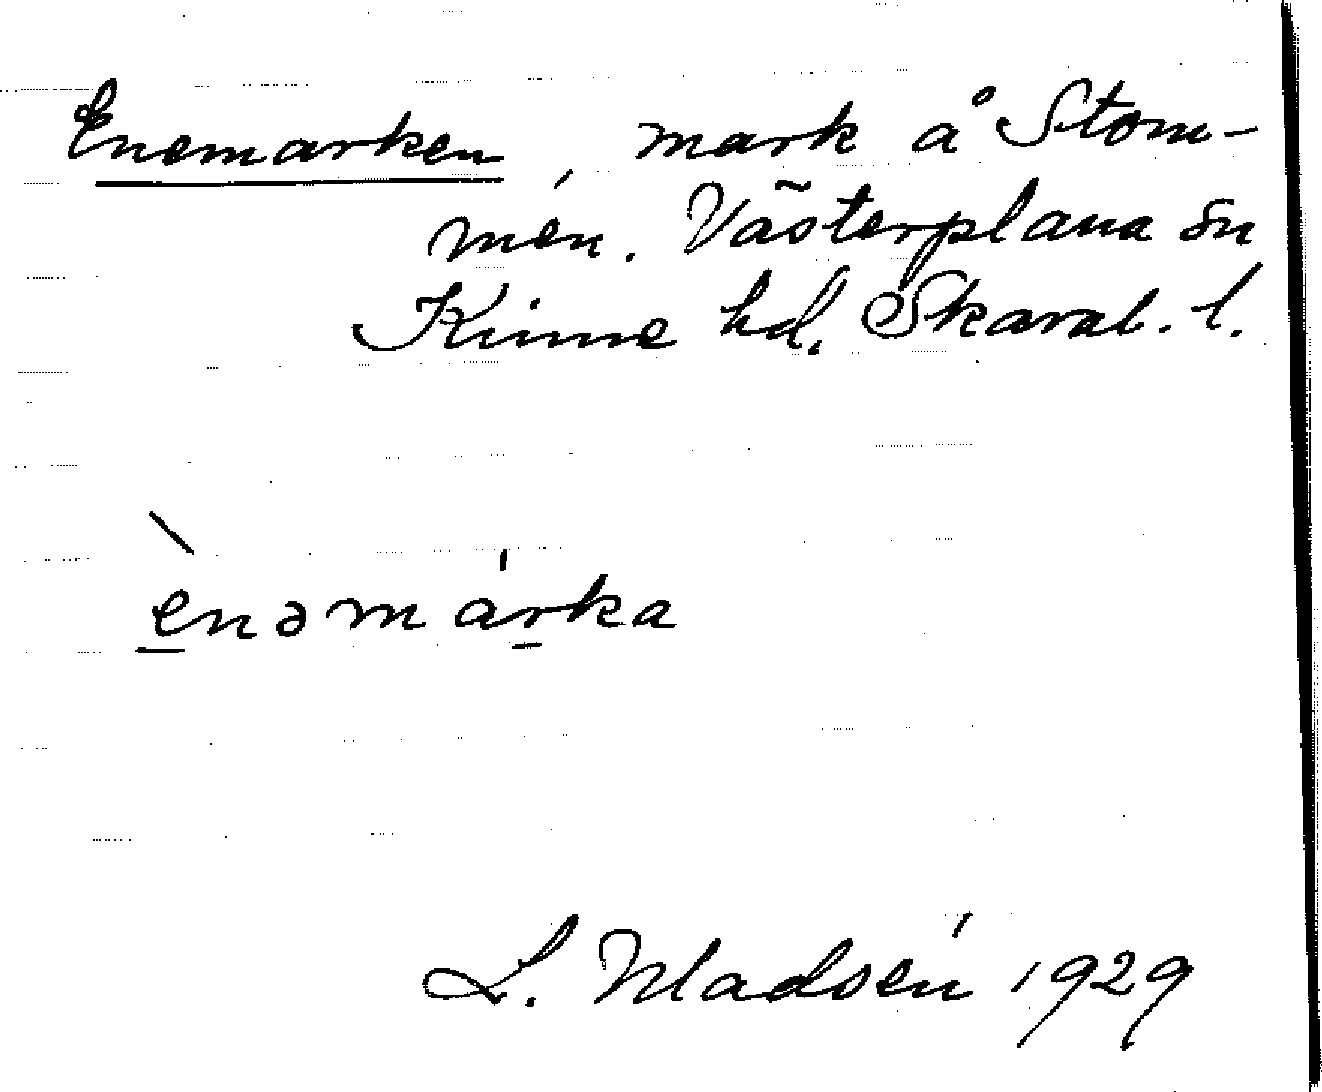 Enemarken, mark å Stom-
men. Västerplana sn
Kinne hd. Skarab. l.
ènəmárka
L. Madsén 1929